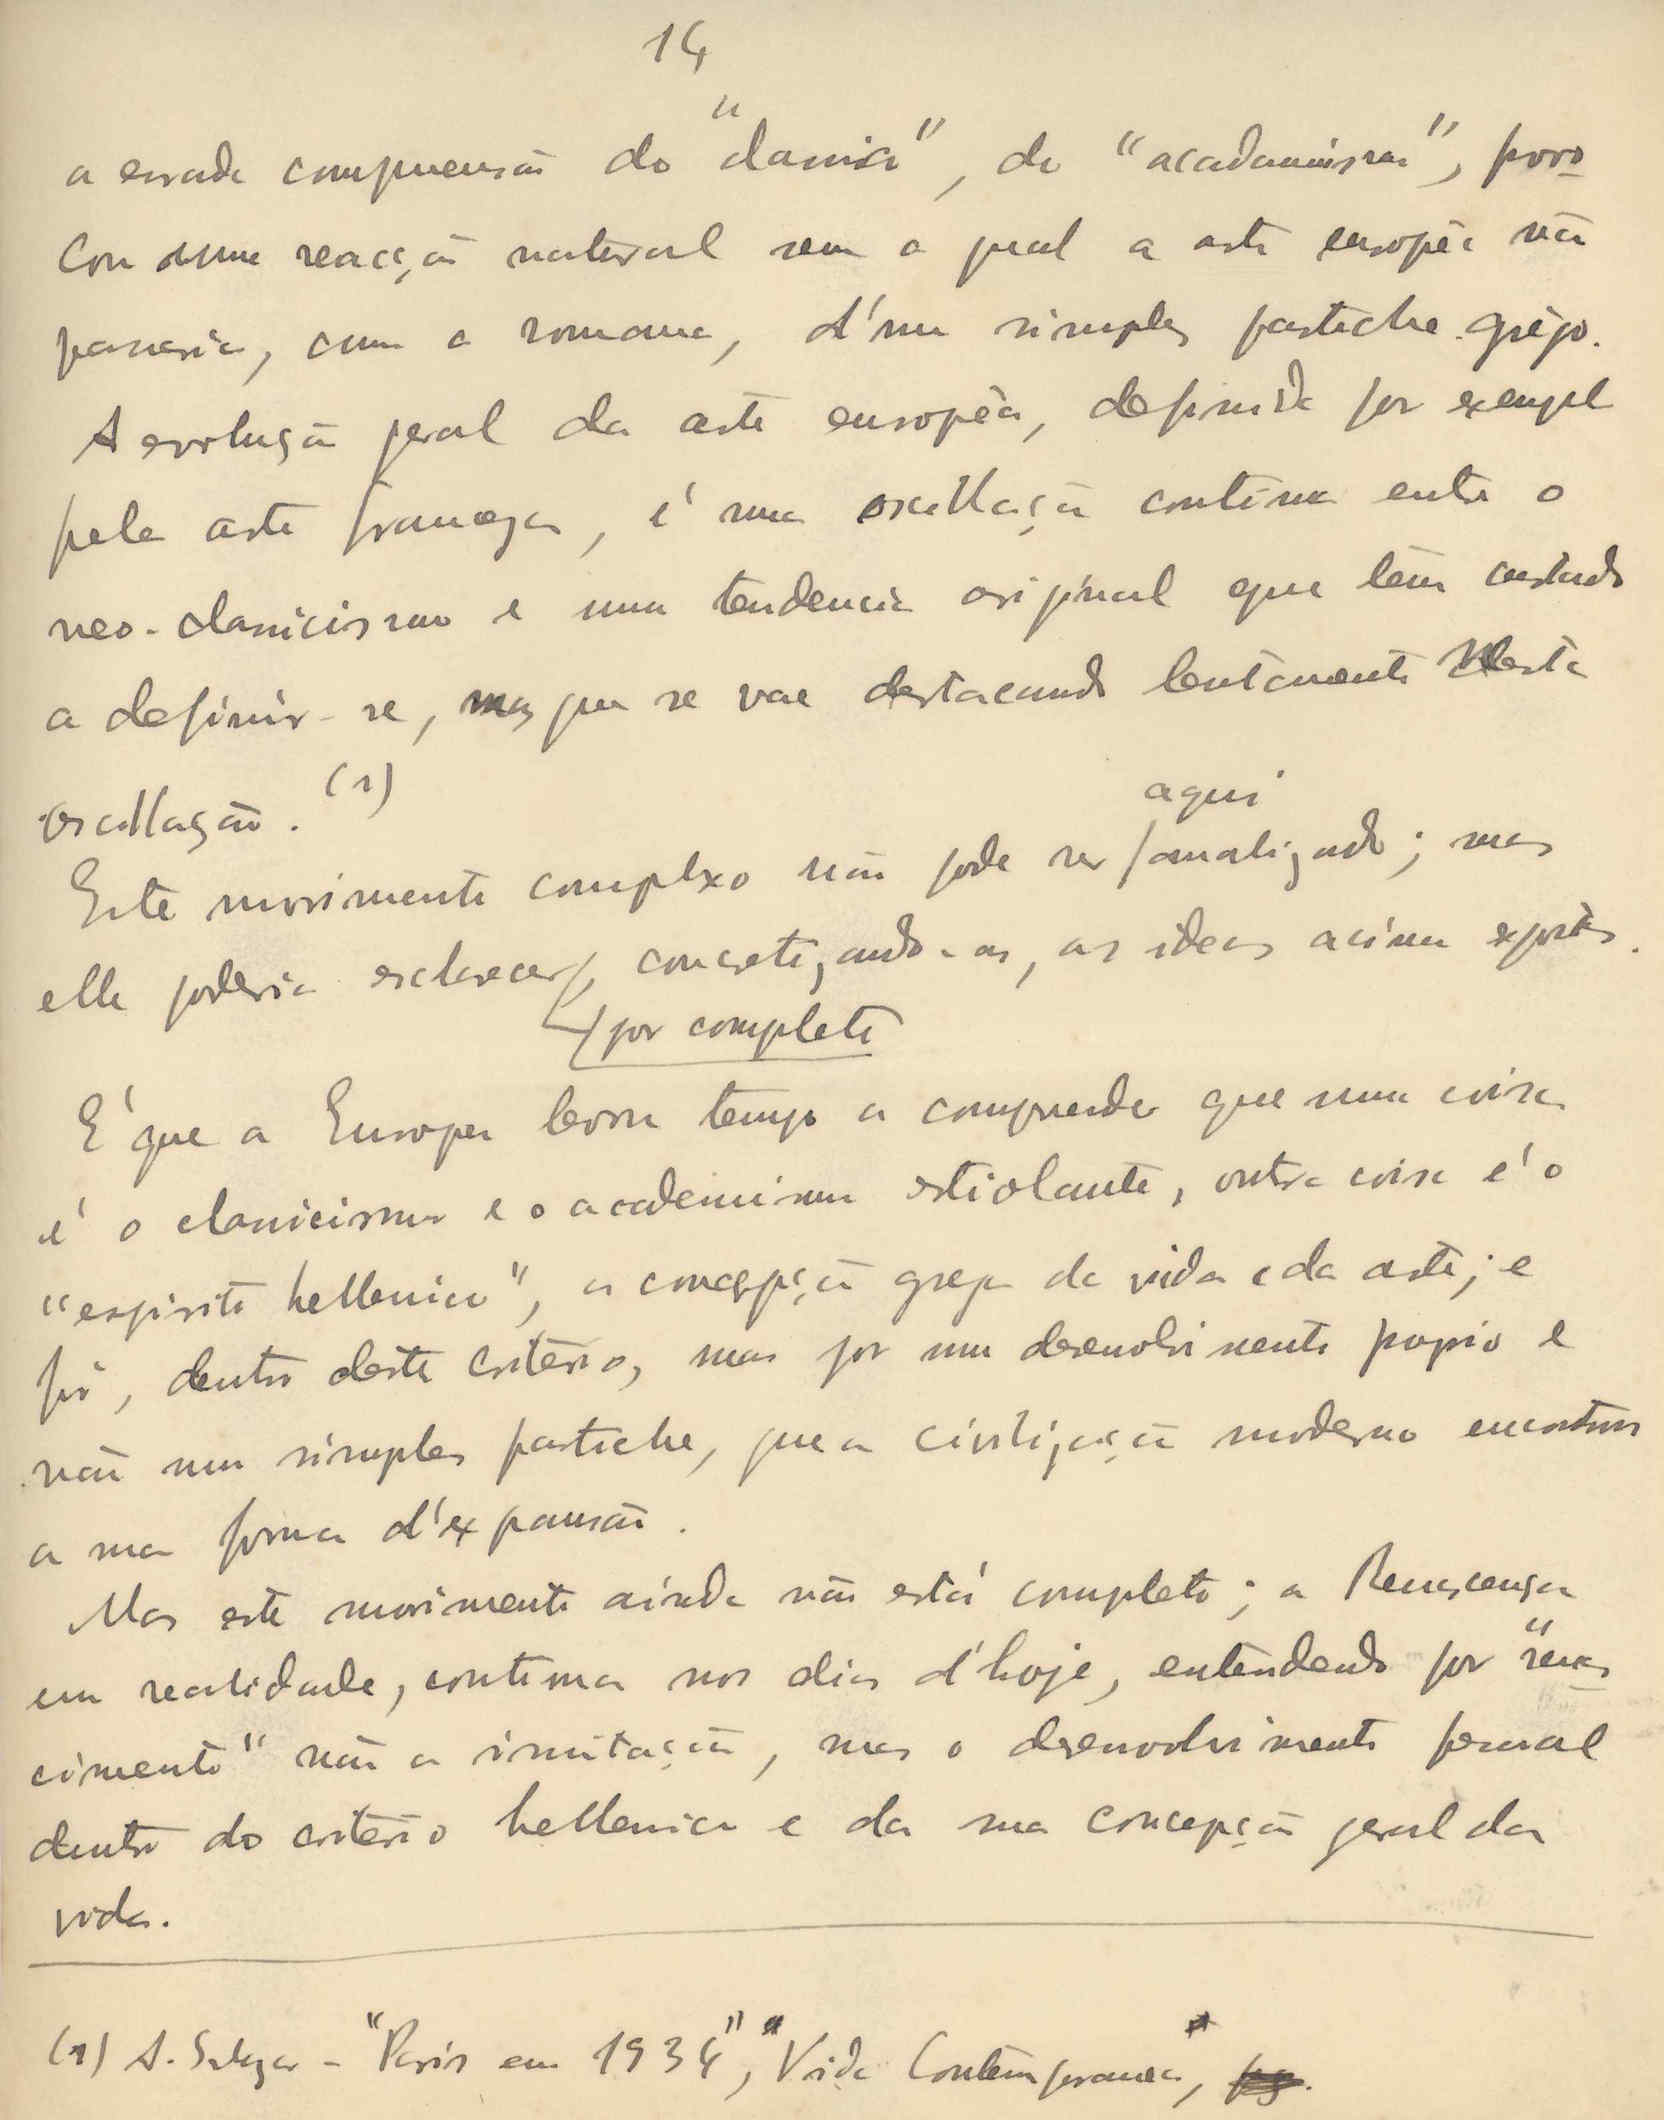 14
a errada comprehensão do "classico", do "academismo", provo
cou uma reacção natural sem a qual a arte europêa não
passaria, como a romana, d'um simples pastiche grêgo.
A evolução geral da arte europêa, definida por exemplo
pela arte franceza, é uma oscillação continua entre o
neo-classicismo e uma tendencia original que têm custado
a definir-se, mas que se vae destacando lentamente desta
oscillação. (1)
aqui
Este movimento complexo não pode ser analizado; mas
elle poderia esclarecer, concretizando-as, as ideas acima expostas.
por completo
E' que a Europa levou tempo a comprehender que uma coisa
é o classicismo e o academismo estiolante, outra coisa é o
"espirito hellenico", a concepção grega da vida e da arte; e
foi, dentro deste critério, mas por um desenvolvimento proprio e
não um simples pastiche, que a civilização moderna encontrou
a sua forma d'expansão.
Mas este movimento ainda não está completo; a Renascença
em realidade, continua nos dias d'hoje, entendendo por "renas
cimento" não a imitação, mas o desenvolvimento
dentro do critério hellenico e da sua concepção geral da
vida.
(1) A. Salazar - "Paris em 1934", "Vida Contemporanea",